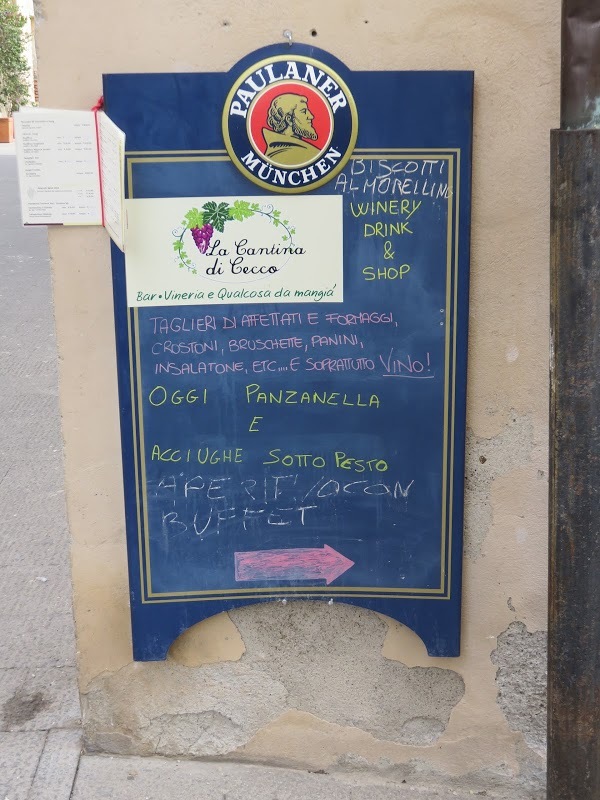 PAULANER
MÜNCHEN
BISCOTTI
AL MORELLINO
WINERY
DRINK
&
SHOP
La Cantina
di Cecco
Bar • Vineria e Qualcosa da mangià
TAGLIERI DI AFFETTATI E FORMAGGI,
CROSTONI, BRUSCHETTE, PANINI,
INSALATONE, ETC.... E SOPRATTUTTO VINO!
OGGI PANZANELLA
E
ACCIUGHE SOTTO PESTO
APERITIVO CON
BUFFET